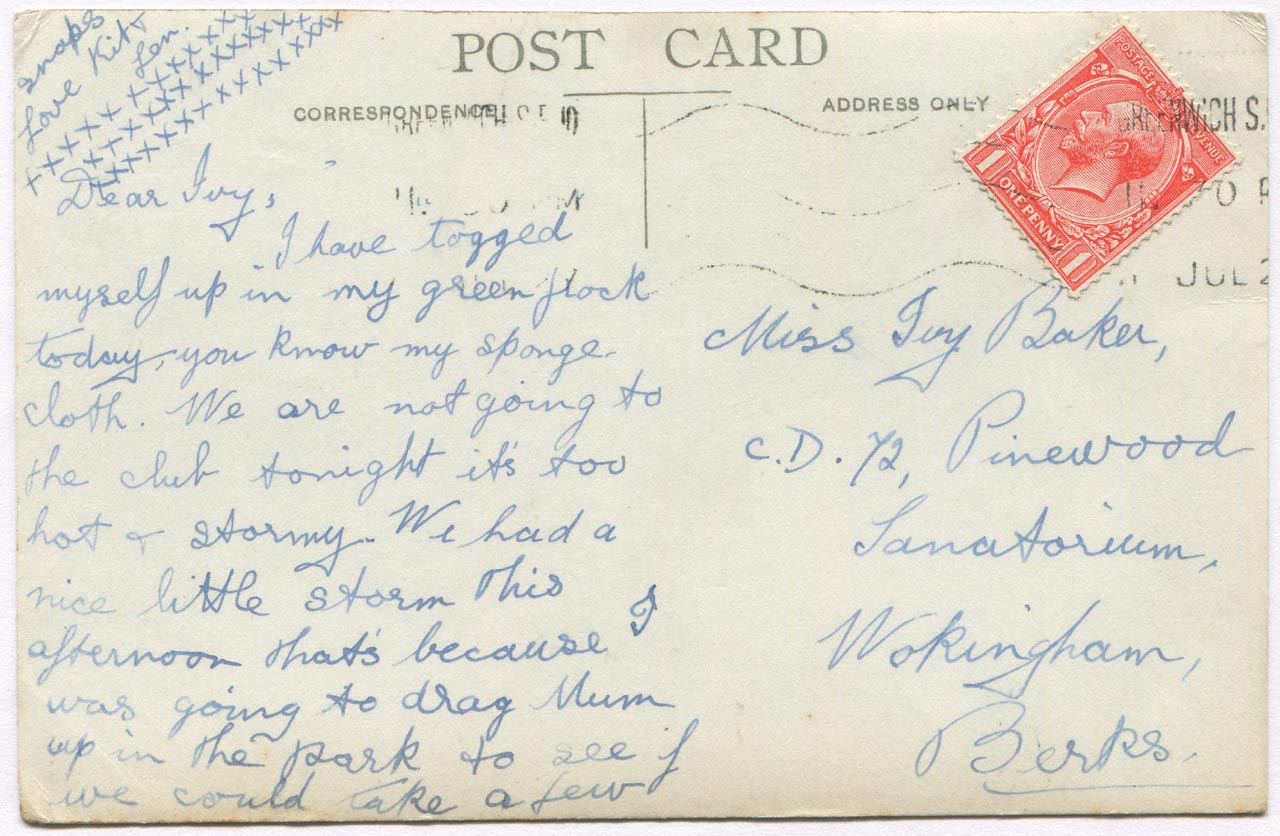 POST CARD
CORRESPONDENCE
ADDRESS ONLY
POSTAGE
REVENUE
ONE PENNY
1
1
GREENWICH S.
JUL 2
Dear Ivy,
I have togged
myself up in my green frock
today, you know my sponge-
cloth. We are not going to
the club tonight it's too
hot & stormy. We had a
nice little storm this
afternoon that's because I
was going to drag Mum
up in the park to see if
we could take a few
snaps
Love Kit &
Len.
xxxxxxxxxxx
xxxxxxxxxxxxx
xxxxxxxxxxxxxxx
Miss Ivy Baker,
C.D. 72, Pinewood
Sanatorium,
Wokingham,
Berks.